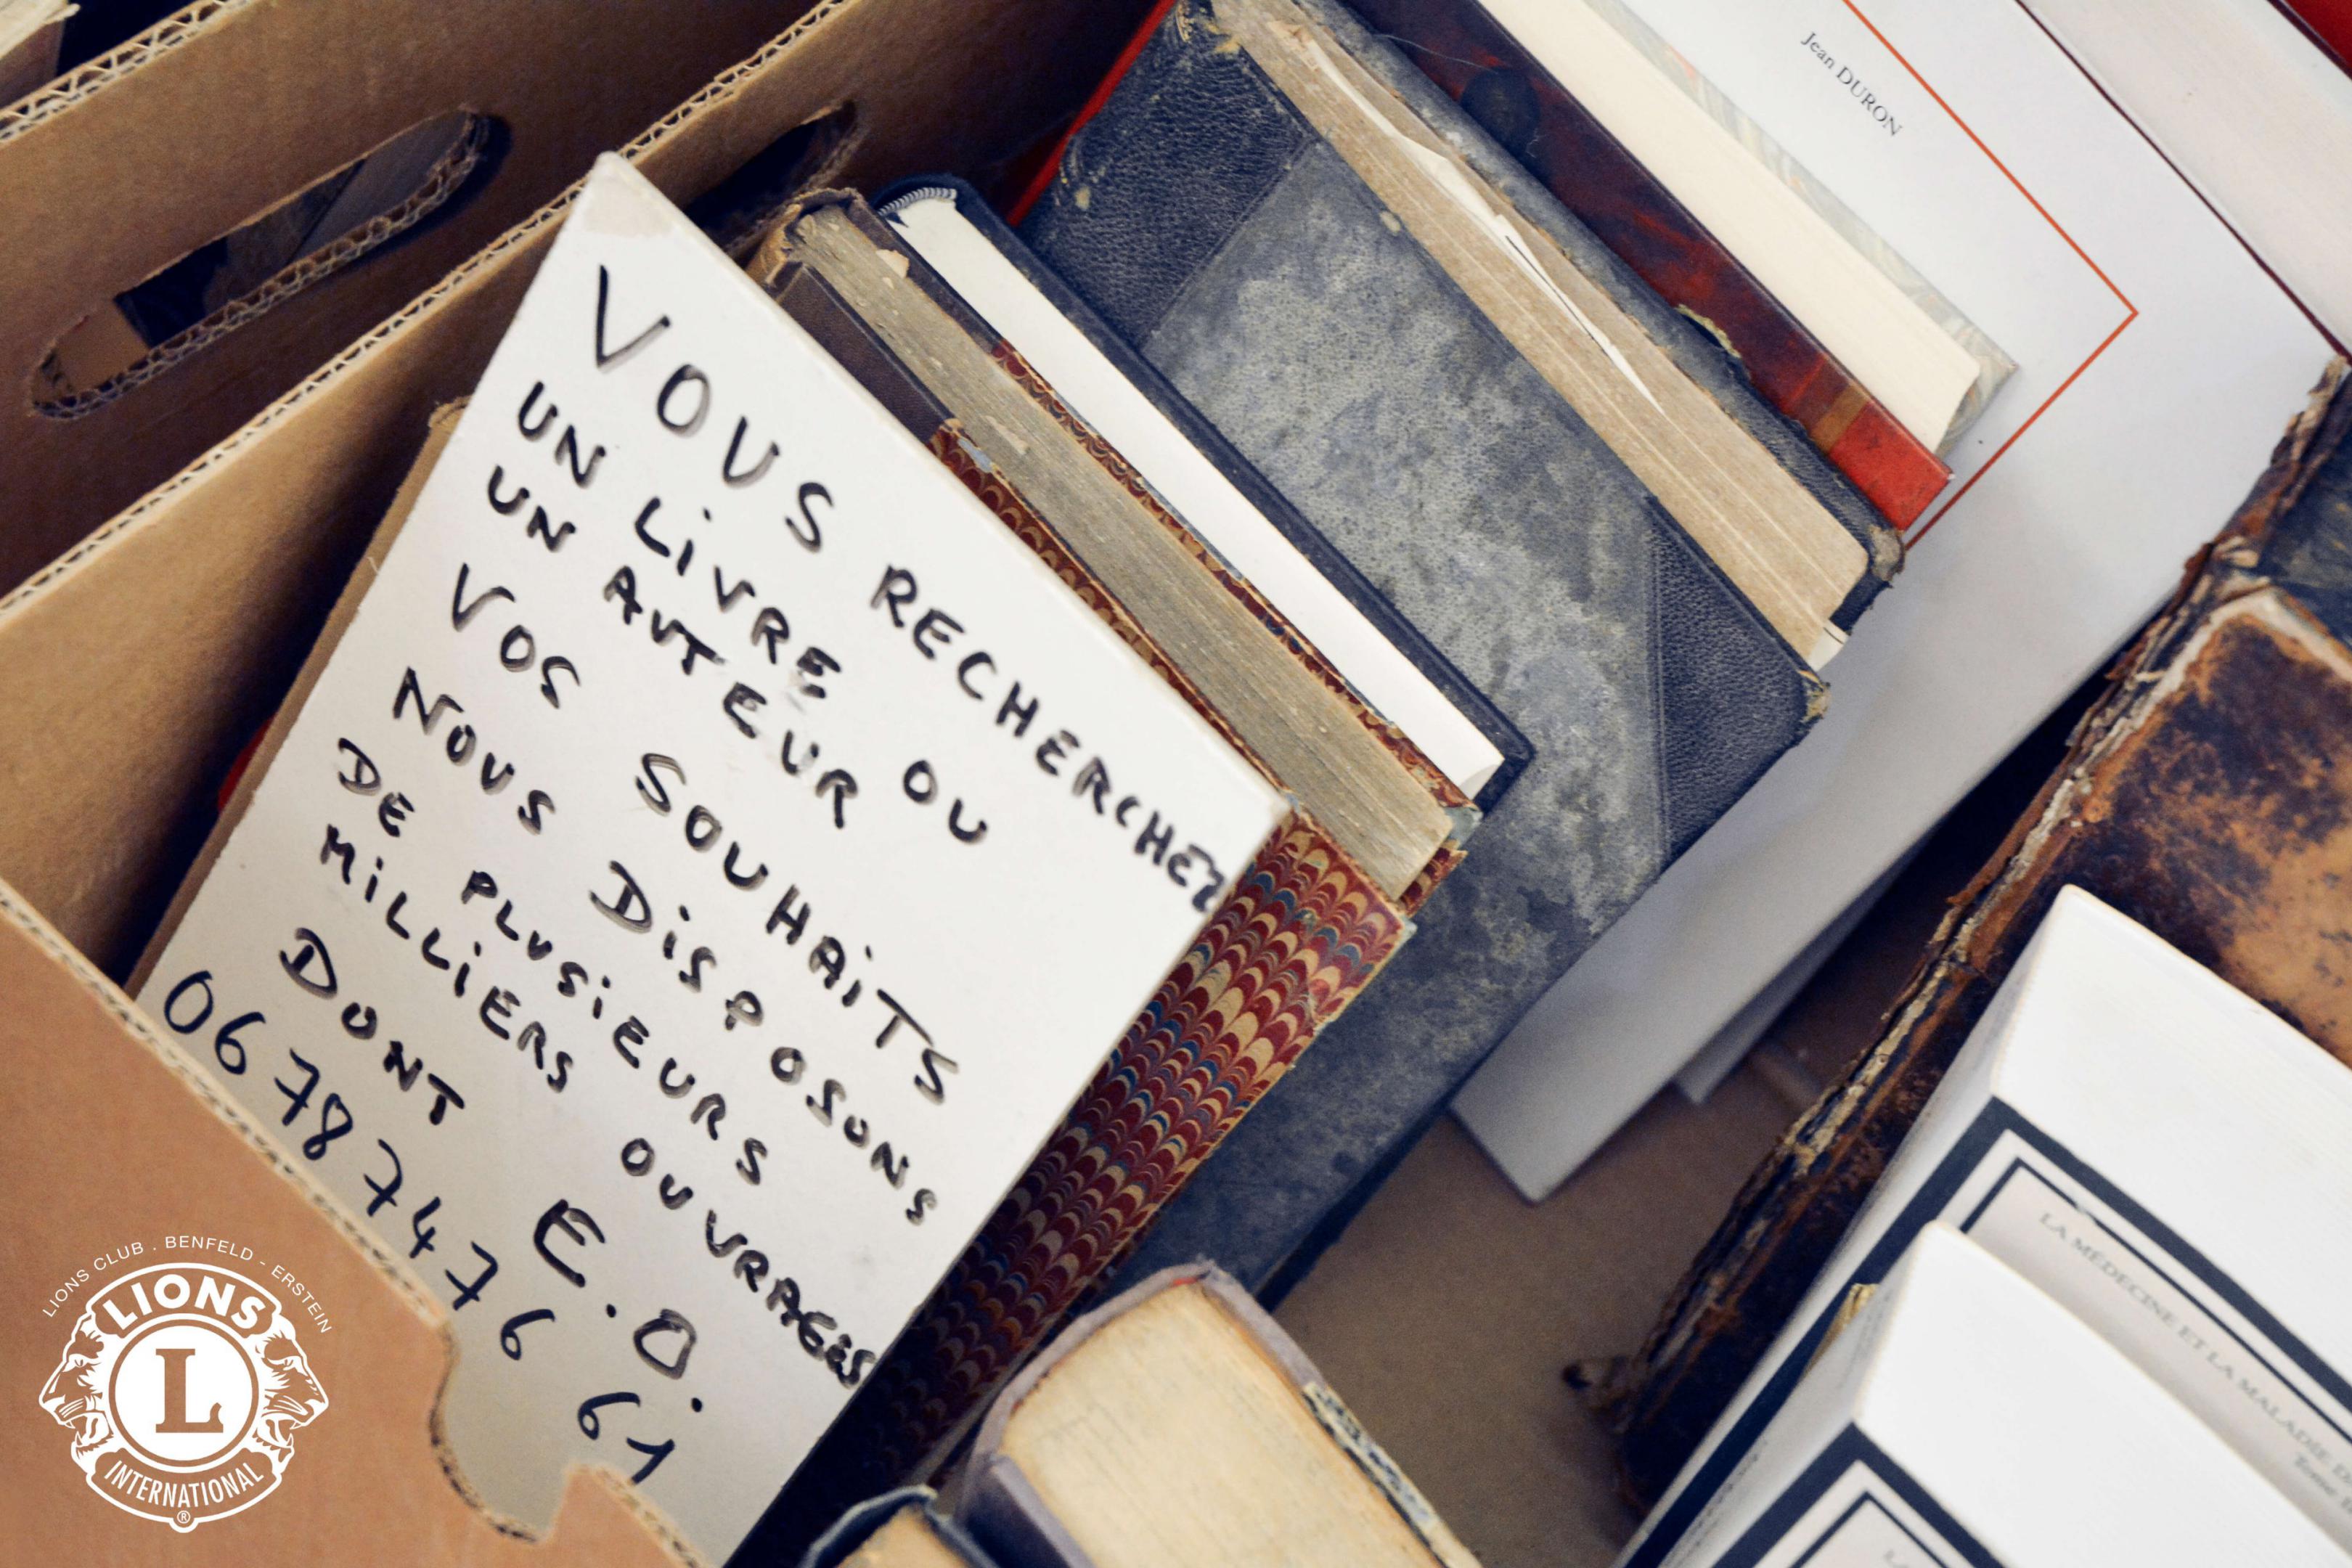 Jean DURON
VOUS RECHERCHEZ
UN LiVRE OU
UN AUTEUR
VOS SOUHAiTS
NOUS DiSPOSONS
DE PLUSiEURS
MiLLiERS OUVRAGES
DONT E.O.
06 78 74 76 61
LA MÉDECINE ET LA MALADIE
LIONS CLUB . BENFELD - ERSTEIN
LIONS
L
INTERNATIONAL
®